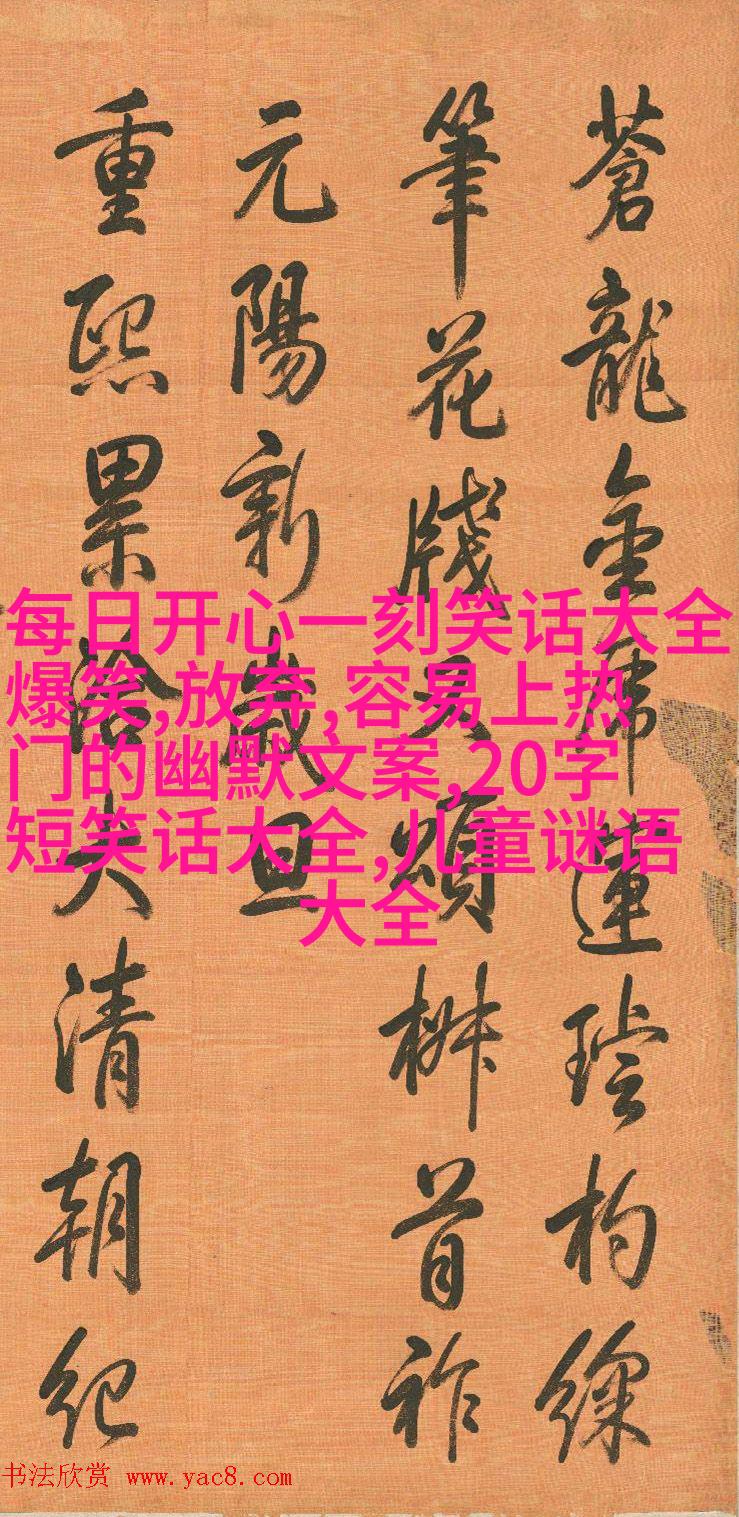 蒼龍金虎運璿杓綵
筆花牋又頌椒首祚
元陽新歲旦
重熙累洽大清朝紀
每日开心一刻笑话大全
爆笑,放弃,容易上热
门的幽默文案,20字
短笑话大全,儿童谜语
大全
书法欣赏 www.yac8.com